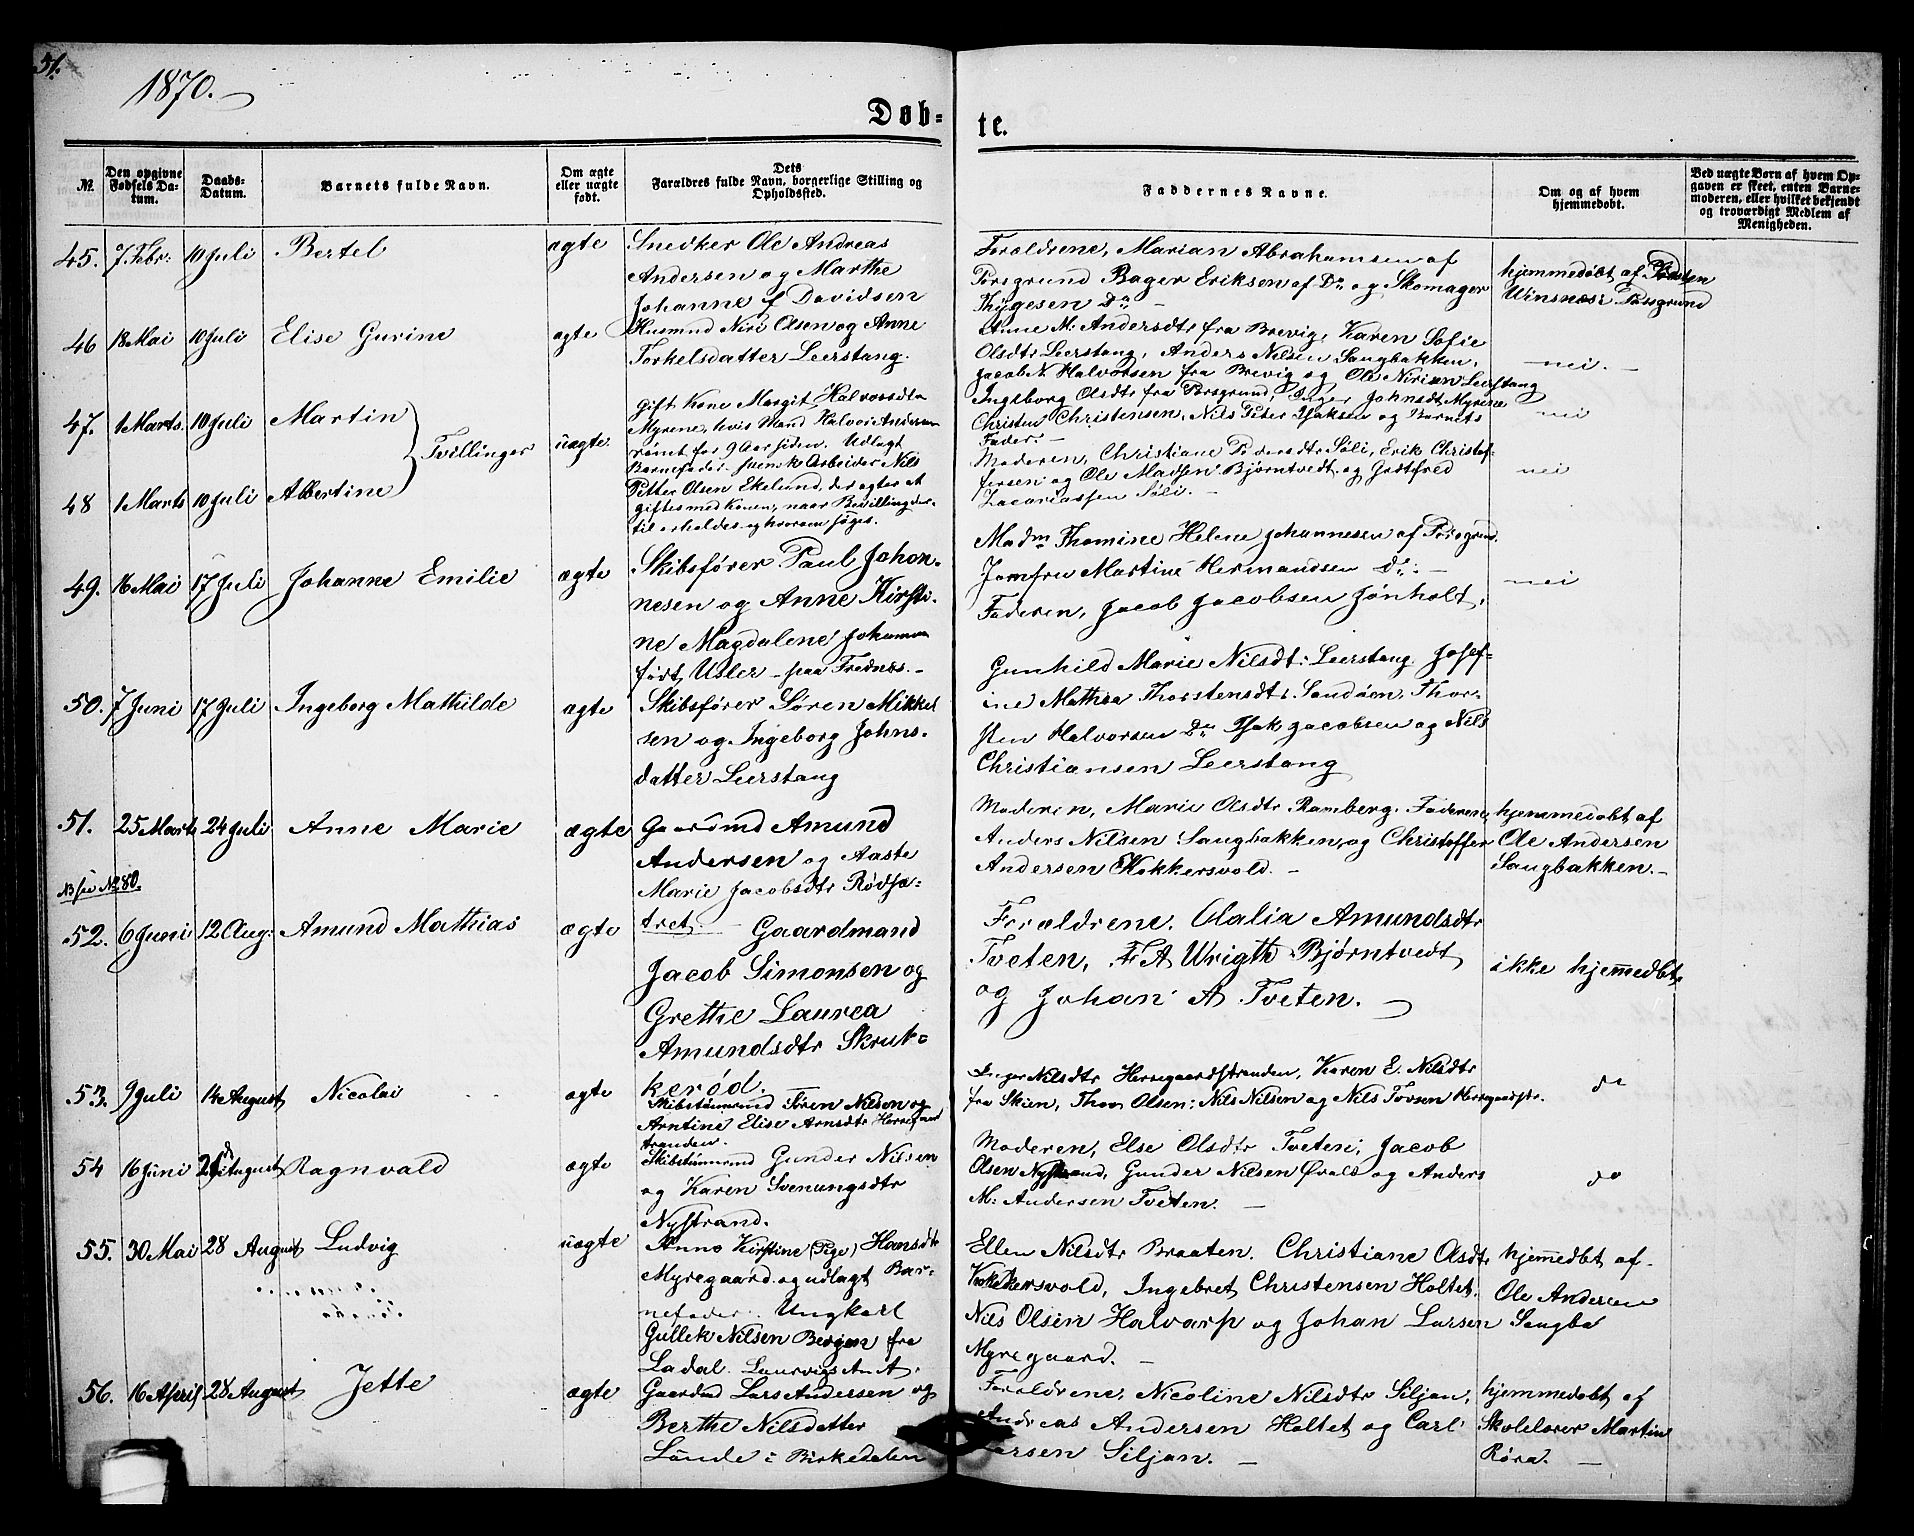 51.
1870.
Døb-
te.
№.
Den opgivne Fødsels Datum.
Daabs-Datum.
Barnets fulde Navn.
Om ægte eller uægte født.
Dets Forældres fulde Navn, borgerlige Stilling og Opholdssted.
Faddernes Navne.
Om og af hvem hjemmedøbt.
Ved uægte Born af hvem Opgaven er skeet, enten Barnemoderen, eller hvilket bekjendt og troværdigt Medlem af Menigheden.
45. 7. Febr: 10 Juli Bertel ægte
Snedker Ole Andreas
Andersen og Marthe
Johanne f Davidsen
Forældrene, Marian Abrahamsen af
Porsgrund Bager Eriksen af Do og Skomager
Thygesen Do -
hjemmedøbt af
Winsnes i Porsgrund
46 18 Mai 10 Juli Elise Gurine ægte
Husmnd Niri Olsen og Anne
Torkelsdatter Leerstang.
Anne M. Andersdtr fra Brevig, Karen Sofie
Olsdtr Leerstang, Anders Nilsen Saugbakken,
Jacob N. Halvorsen fra Brevig og Ole Nirisen Leerstang
nei.
47. 1 Marts 10 Juli Martin
Tvillinger uægte
48 1 Marts 10 Juli Albertine
Gift Kone Margit Halvorsdtr
Myrene, hvis Mand Halvor Andersen
rømt for 9 Aar siden. Udlagt
Barnefader svensk Arbeider Nils
Petter Olsen Ekelund, der agter at
giftes med Konen, naar Bevilling der-
til erholdes og hvorom søges.
Ingeborg Olsdtr fra Porsgrund, Inger Johnsdt Myrene
Christen Christensen, Nils Peter Isaksen og Barnets
Fader -
nei
Moderen, Christiane Pedersdtr Søli, Erik Christof-
fersen og Ole Madsen Bjørntvedt og Gotfred
Zacariassen Søli. -
nei
49. 16 Mai 17 Juli Johanne Emilie ægte
Skibsfører Paul Johan-
nesen og Anne Kirsti-
ne Magdalene Johanne
født Usler - paa Frednes. -
Madm Thomine Helene Johannesen af Porsgrund.
Jomfru Martine Hermandsen Do: -
Faderen, Jacob Jacobsen Jønholt.
nei
50. 7 Juni 17 Juli Ingeborg Mathilde ægte
Skibsfører Søren Mikkel
sen og Ingeborg Johns-
datter Leerstang
Gunhild Marie Nilsdt: Leerstang. Josef-
ine Mathea Thorstensdtr Sandøen, Thor-
sten Halvorsen Do Isak Jacobsen og Nils
Christiansen Leerstang
51. 25 Marts 24 Juli Anne Marie ægte
NB se No 80.
Gaardmd Amund
Andersen og Aaste
Marie Jacobsdtr Rødsæ-
tret. -
Moderen, Marie Olsdtr Ramberg. Faderen,
Anders Nilsen Saugbakken, og Christoffer
Andersen Kokkersvold. -
hjemmedøbt af
Ole Andersen
Saugbakken. -
52. 6 Juni 12 Aug: Amund Mathias ægte
Gaardmand
Jacob Simonsen og
Grethe Laurea
Amundsdtr Skruk-
kerød.
Forældrene. Olalia Amundsdtr
Tveten, F A Wrigth Bjørntvedt
og Johan A Tveten.
ikke hjemmedbt.
53. 9 Juli 14 August Nicolai ægte
Skibstømrmd Søren Nilsen og
Arntine Elise Arnsdtr Herregaard
stranden.
Inger Nilsdtr Herregaardstranden, Karen E. Nilsdtr
fra Skien, Thom Olsen, Nils Nilsen og Nils Tovsen Herregaardstr.
do
54 16 Juni 21 August Ragnvald ægte
Skibstømrmd Gunder Nilsen
og Karen Svenungsdtr
Nystrand.
Moderen, Else Olsdtr Tveten, Jacob
Olsen Nystrand, Gunder Nilsen Øvald og Anders
M. Andersen Tveten. -
do
55. 30 Mai 28 August Ludvig uægte
Anne Kirstine (Pige) Hansdtr
Myregaard og udlagt Bar-
nefader Ungkarl
Gullek Nilsen Bergan fra
Ladal. Laurvigs A A.
Ellen Nilsdtr Braaten. Christiane Olsdtr
Kokkersvold, Ingebret Christensen Holtet,
Nils Olsen Halvarp og Johan Larsen
Myregaard. -
hjemmedbt af
Ole Andersen
Saugba
56. 16 April 28 August Jette ægte
Gaardmd Lars Andersen og
Berthe Nilsdatter
Lunde i Birkedalen
Forældrene, Nicoline Nilsdtr Siljan,
Andreas Andersen Holtet og Carl
Larsen Siljan. -
hjemmedøbt af
Skolelærer Martin
Røra. -